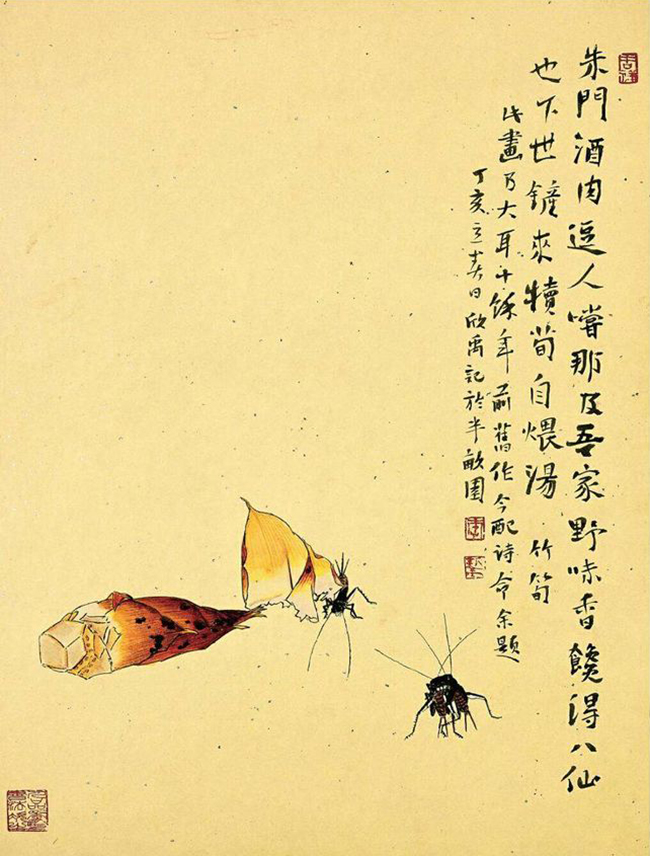 朱門酒肉逗人嚐那及吾家野味香饞得八仙
也下世鏟來犢筍自煨湯 竹筍
此畫乃大耳十餘年前舊作今配诗命余題
丁亥立春日欣禹記於半畝園